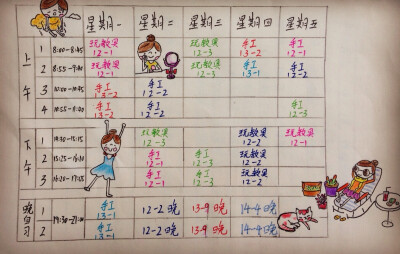 星期一 星期二 星期三 星期四 星期五
上午
1 8:00-8:45 玩教具 玩教具 手工 手工
12-1 12-3 13-1 12-1
2 玩教具 玩教具 手工 手工
12-1 12-3 13-1 12-2
3 手工 手工
13-2 12-2
4 手工 手工 手工
13-2 12-2 12-3
下午
1 玩教具 玩教具 玩教具
12-3 12-2 12-1
2 手工 手工 玩教具
12-1 12-3 12-2
3 手工 手工 玩教具
12-1 12-3 12-2
晚自习
1 19:30-21:00 手工 12-2晚 13-9晚 14-4晚
13-1
2 手工 12-2晚 13-9晚 14-4晚
13-1